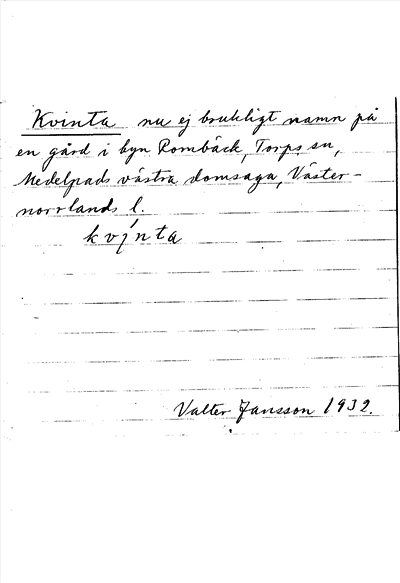 Kvinta nu ej brukligt namn på
en gård i byn Rombäck, Torps sn,
Medelpads västra domsaga, Väster-
norrlands l.
kvinta
Valter Jansson 1932.